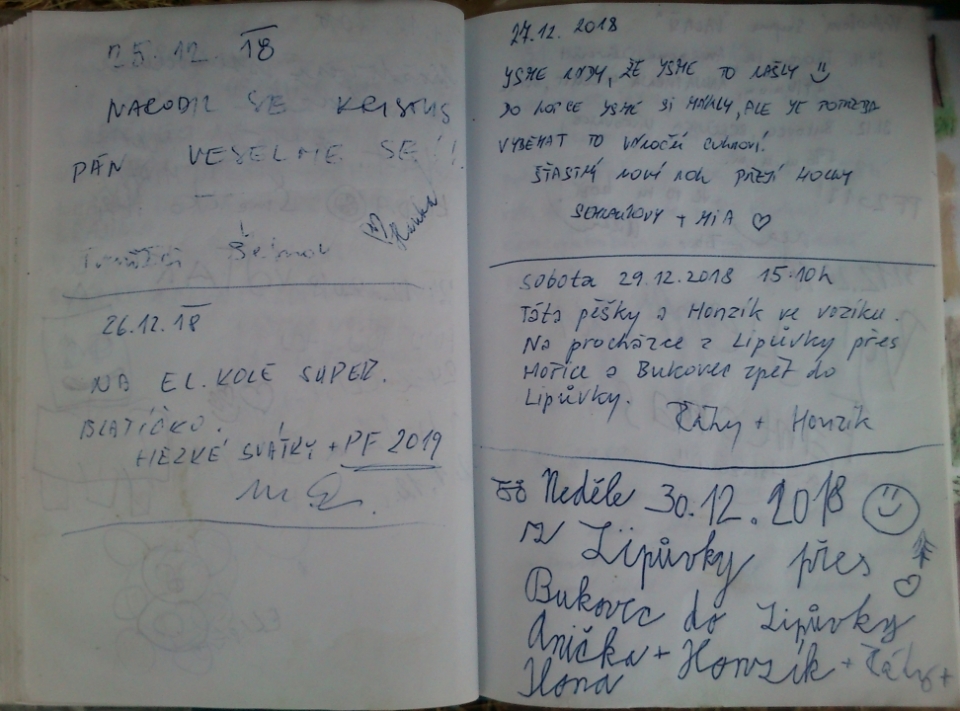 25.12 18
NARODIL SE KRISTUS
PÁN VESELME SE!!
Hanka
26.12.18
NA EL. KOLE SUPER.
BLATÍČKO.
HEZKÉ SVÁTKY + PF 2019
27.12. 2018
JSME RÁDY, ŽE JSME TO NAŠLY
DO KOPCE JSME SI MÁKLY, ALE JE POTŘEBA
VYBĚHAT TO VÁNOČNÍ CUKROVÍ!
ŠŤASTNÝ NOVÝ ROK PŘEJÍ HOLKY
+ MIA
Sobota 29.12.2018 15.10h
Táta pěšky a Honzík ve vozíku.
Na procházce z Lipůvky přes
Hořice a Bukovec zpět do
Lipůvky.
Ťáhy + Honzík
Neděle 30.12.2018
Z Lipůvky přes
Bukovec do Lipůvky
Anička + Honzík + Ťáhy +
Ilona